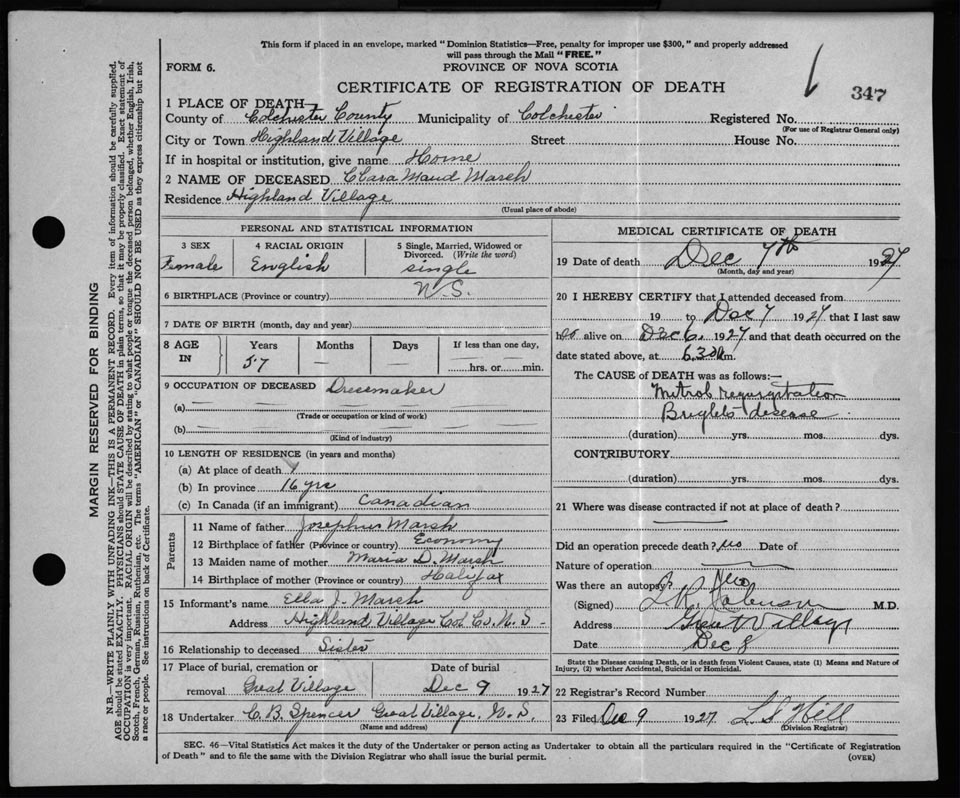 This form if placed in an envelope, marked "Dominion Statistics—Free, penalty for improper use $300," and properly addressed
will pass through the Mail "FREE."
FORM 6.
PROVINCE OF NOVA SCOTIA
347
CERTIFICATE OF REGISTRATION OF DEATH
1 PLACE OF DEATH—
County of Colchester County Municipality of Colchester Registered No.
(For use of Registrar General only)
City or Town Highland Village Street House No.
If in hospital or institution, give name Home
2 NAME OF DECEASED Clara Maud Marsh
Residence Highland Village
(Usual place of abode)
PERSONAL AND STATISTICAL INFORMATION
3 SEX 4 RACIAL ORIGIN 5 Single, Married, Widowed or
Divorced. (Write the word)
Female English single
6 BIRTHPLACE (Province or country) N.S.
7 DATE OF BIRTH (month, day and year)
8 AGE IN Years Months Days If less than one day,
57 — — hrs. or min.
9 OCCUPATION OF DECEASED Dressmaker
(a)
(Trade or occupation or kind of work)
(b)
(Kind of industry)
10 LENGTH OF RESIDENCE (in years and months)
(a) At place of death
(b) In province 16 yrs
(c) In Canada (if an immigrant) Canadian
Parents
11 Name of father Josephus Marsh
12 Birthplace of father (Province or country) Economy
13 Maiden name of mother Maria D. Marsh
14 Birthplace of mother (Province or country) Halifax
15 Informant's name Ella J. Marsh
Address Highland Village Col. Co. N. S.
16 Relationship to deceased Sister
17 Place of burial, cremation or Date of burial
removal Great Village Dec 9 1927
18 Undertaker C. B. Spencer Great Village, N. S.
(Name and address)
MEDICAL CERTIFICATE OF DEATH
19 Date of death Dec 7th 1927
(Month, day and year)
20 I HEREBY CERTIFY that I attended deceased from
19 to Dec 7 1927 that I last saw
h er alive on Dec 6, 1927 and that death occurred on the
date stated above, at 6.30 m.
The CAUSE of DEATH was as follows:—
Mitral regurgitation
Brights disease
(duration) yrs. mos. dys.
CONTRIBUTORY
(duration) yrs. mos. dys.
21 Where was disease contracted if not at place of death?
Did an operation precede death? no Date of
Nature of operation
Was there an autopsy? No
(Signed) M.D.
Address Great Village
Date Dec 8
State the Disease causing Death, or in death from Violent Causes, state (1) Means and Nature of
Injury, (2) whether Accidental, Suicidal or Homicidal.
22 Registrar's Record Number
23 Filed Dec 9 1927 L. S. Hill
(Division Registrar)
SEC. 46—Vital Statistics Act makes it the duty of the Undertaker or person acting as Undertaker to obtain all the particulars required in the "Certificate of Registration
of Death" and to file the same with the Division Registrar who shall issue the burial permit.
(OVER)
MARGIN RESERVED FOR BINDING
N.B.—WRITE PLAINLY WITH UNFADING INK—THIS IS A PERMANENT RECORD. Every item of information should be carefully supplied.
AGE should be stated EXACTLY. PHYSICIANS should STATE CAUSE OF DEATH in plain terms, so that it may be properly classified. Exact statement of
OCCUPATION is very important. RACIAL ORIGIN will be described by stating to what people or tongue the deceased person belonged, whether English, Irish,
Scotch, French, German, Russian, Ruthenian, etc. The terms "AMERICAN" or "CANADIAN" SHOULD NOT BE USED as they express citizenship but not
a race or people. See instructions on back of Certificate.